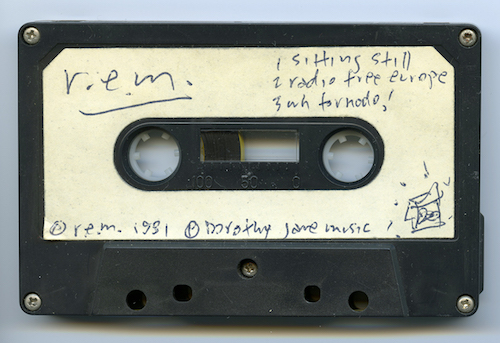 r.e.m.
1 sitting still
2 radio free europe
3 wh tornado!
100 50 0
© r.e.m. 1981 ℗ Dorothy jane music